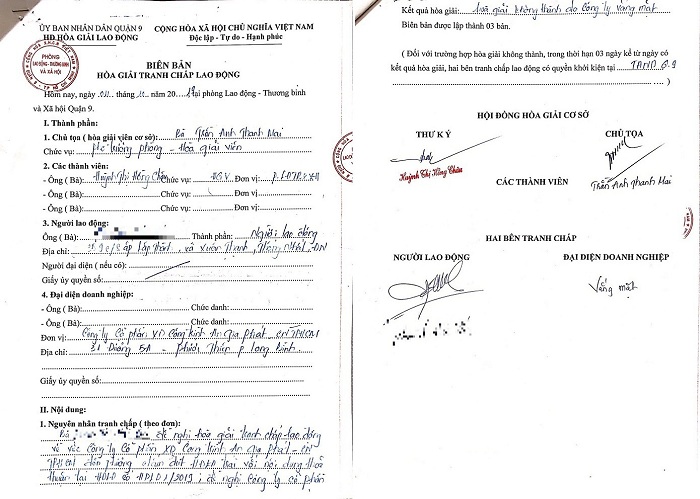 ỦY BAN NHÂN DÂN QUẬN 9
HĐ HÒA GIẢI LAO ĐỘNG
CỘNG HÒA XÃ HỘI CHỦ NGHĨA VIỆT NAM
Độc lập - Tự do - Hạnh phúc
PHÒNG
LAO ĐỘNG - THƯƠNG BINH
VÀ XÃ HỘI
BIÊN BẢN
HÒA GIẢI TRANH CHẤP LAO ĐỘNG
Hôm nay, ngày tháng năm 2019 tại phòng Lao động - Thương binh
và Xã hội Quận 9.
I. Thành phần:
1. Chủ tọa ( hòa giải viên cơ sở): Bà Trần Anh Thanh Mai
Chức vụ: Phó trưởng phòng - Hòa giải viên
2. Các thành viên:
- Ông ( Bà): Huỳnh Thị Hồng Châu Chức vụ: Đơn vị: P. LĐTBXH
- Ông ( Bà): Chức vụ: Đơn vị
- Ông ( Bà): Chức vụ: Đơn vị
3. Người lao động:
Ông ( Bà): Thành phần: Người lao động
Địa chỉ: ấp xã Xuân Thạnh, Thống Nhất, ĐN
Người đại diện ( nếu có):
Giấy ủy quyền số:
4. Đại diện doanh nghiệp:
- Ông ( Bà): Chức danh:
- Ông ( Bà): Chức danh:
Đơn vị: Công ty Cổ phần XD Công trình An Gia Phát - CN TPHCM
Địa chỉ: 31 Đường 5A - Phước Thiện P Long Bình
Giấy ủy quyền số:
II. Nội dung:
1. Nguyên nhân tranh chấp ( theo đơn):
Bà đề nghị hòa giải tranh chấp lao động
về việc Công ty Cổ phần XD Công trình An Gia Phát - CN
TPHCM đơn phương chấm dứt HĐLĐ trái với nội dung thỏa
thuận tại HĐLĐ số 01/2019; đề nghị Công ty Cổ phần
Kết quả hòa giải: Hòa giải không thành do Công ty vắng mặt
Biên bản được lập thành 03 bản.
( Đối với trường hợp hòa giải không thành, trong thời hạn 03 ngày kể từ ngày có
kết quả hòa giải, hai bên tranh chấp lao động có quyền khởi kiện tại TAND Q.9
)
HỘI ĐỒNG HÒA GIẢI CƠ SỞ
THƯ KÝ
CHỦ TỌA
Huỳnh Thị Hồng Châu
CÁC THÀNH VIÊN
Trần Anh Thanh Mai
HAI BÊN TRANH CHẤP
NGƯỜI LAO ĐỘNG
ĐẠI DIỆN DOANH NGHIỆP
Vắng mặt